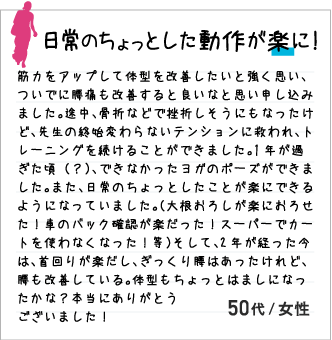 日常のちょっとした動作が楽に!
筋力をアップして体型を改善したいと強く思い、
ついでに腰痛も改善すると良いなと思い申し込み
ました。途中、骨折などで挫折しそうにもなったけ
ど、先生の終始変わらないテンションに救われ、ト
レーニングを続けることができました。1年が過
ぎた頃(?)、できなかったヨガのポーズができま
した。また、日常のちょっとしたことが楽にできる
ようになっていました。(大根おろしが楽におろせ
た!車のバック確認が楽だった!スーパーでカー
トを使わなくなった!等)そして、2年が経った今
は、首回りが楽だし、ぎっくり腰はあったけれど、
腰も改善している。体型もちょっとはましになっ
たかな?本当にありがとう
ございました!
50代/女性